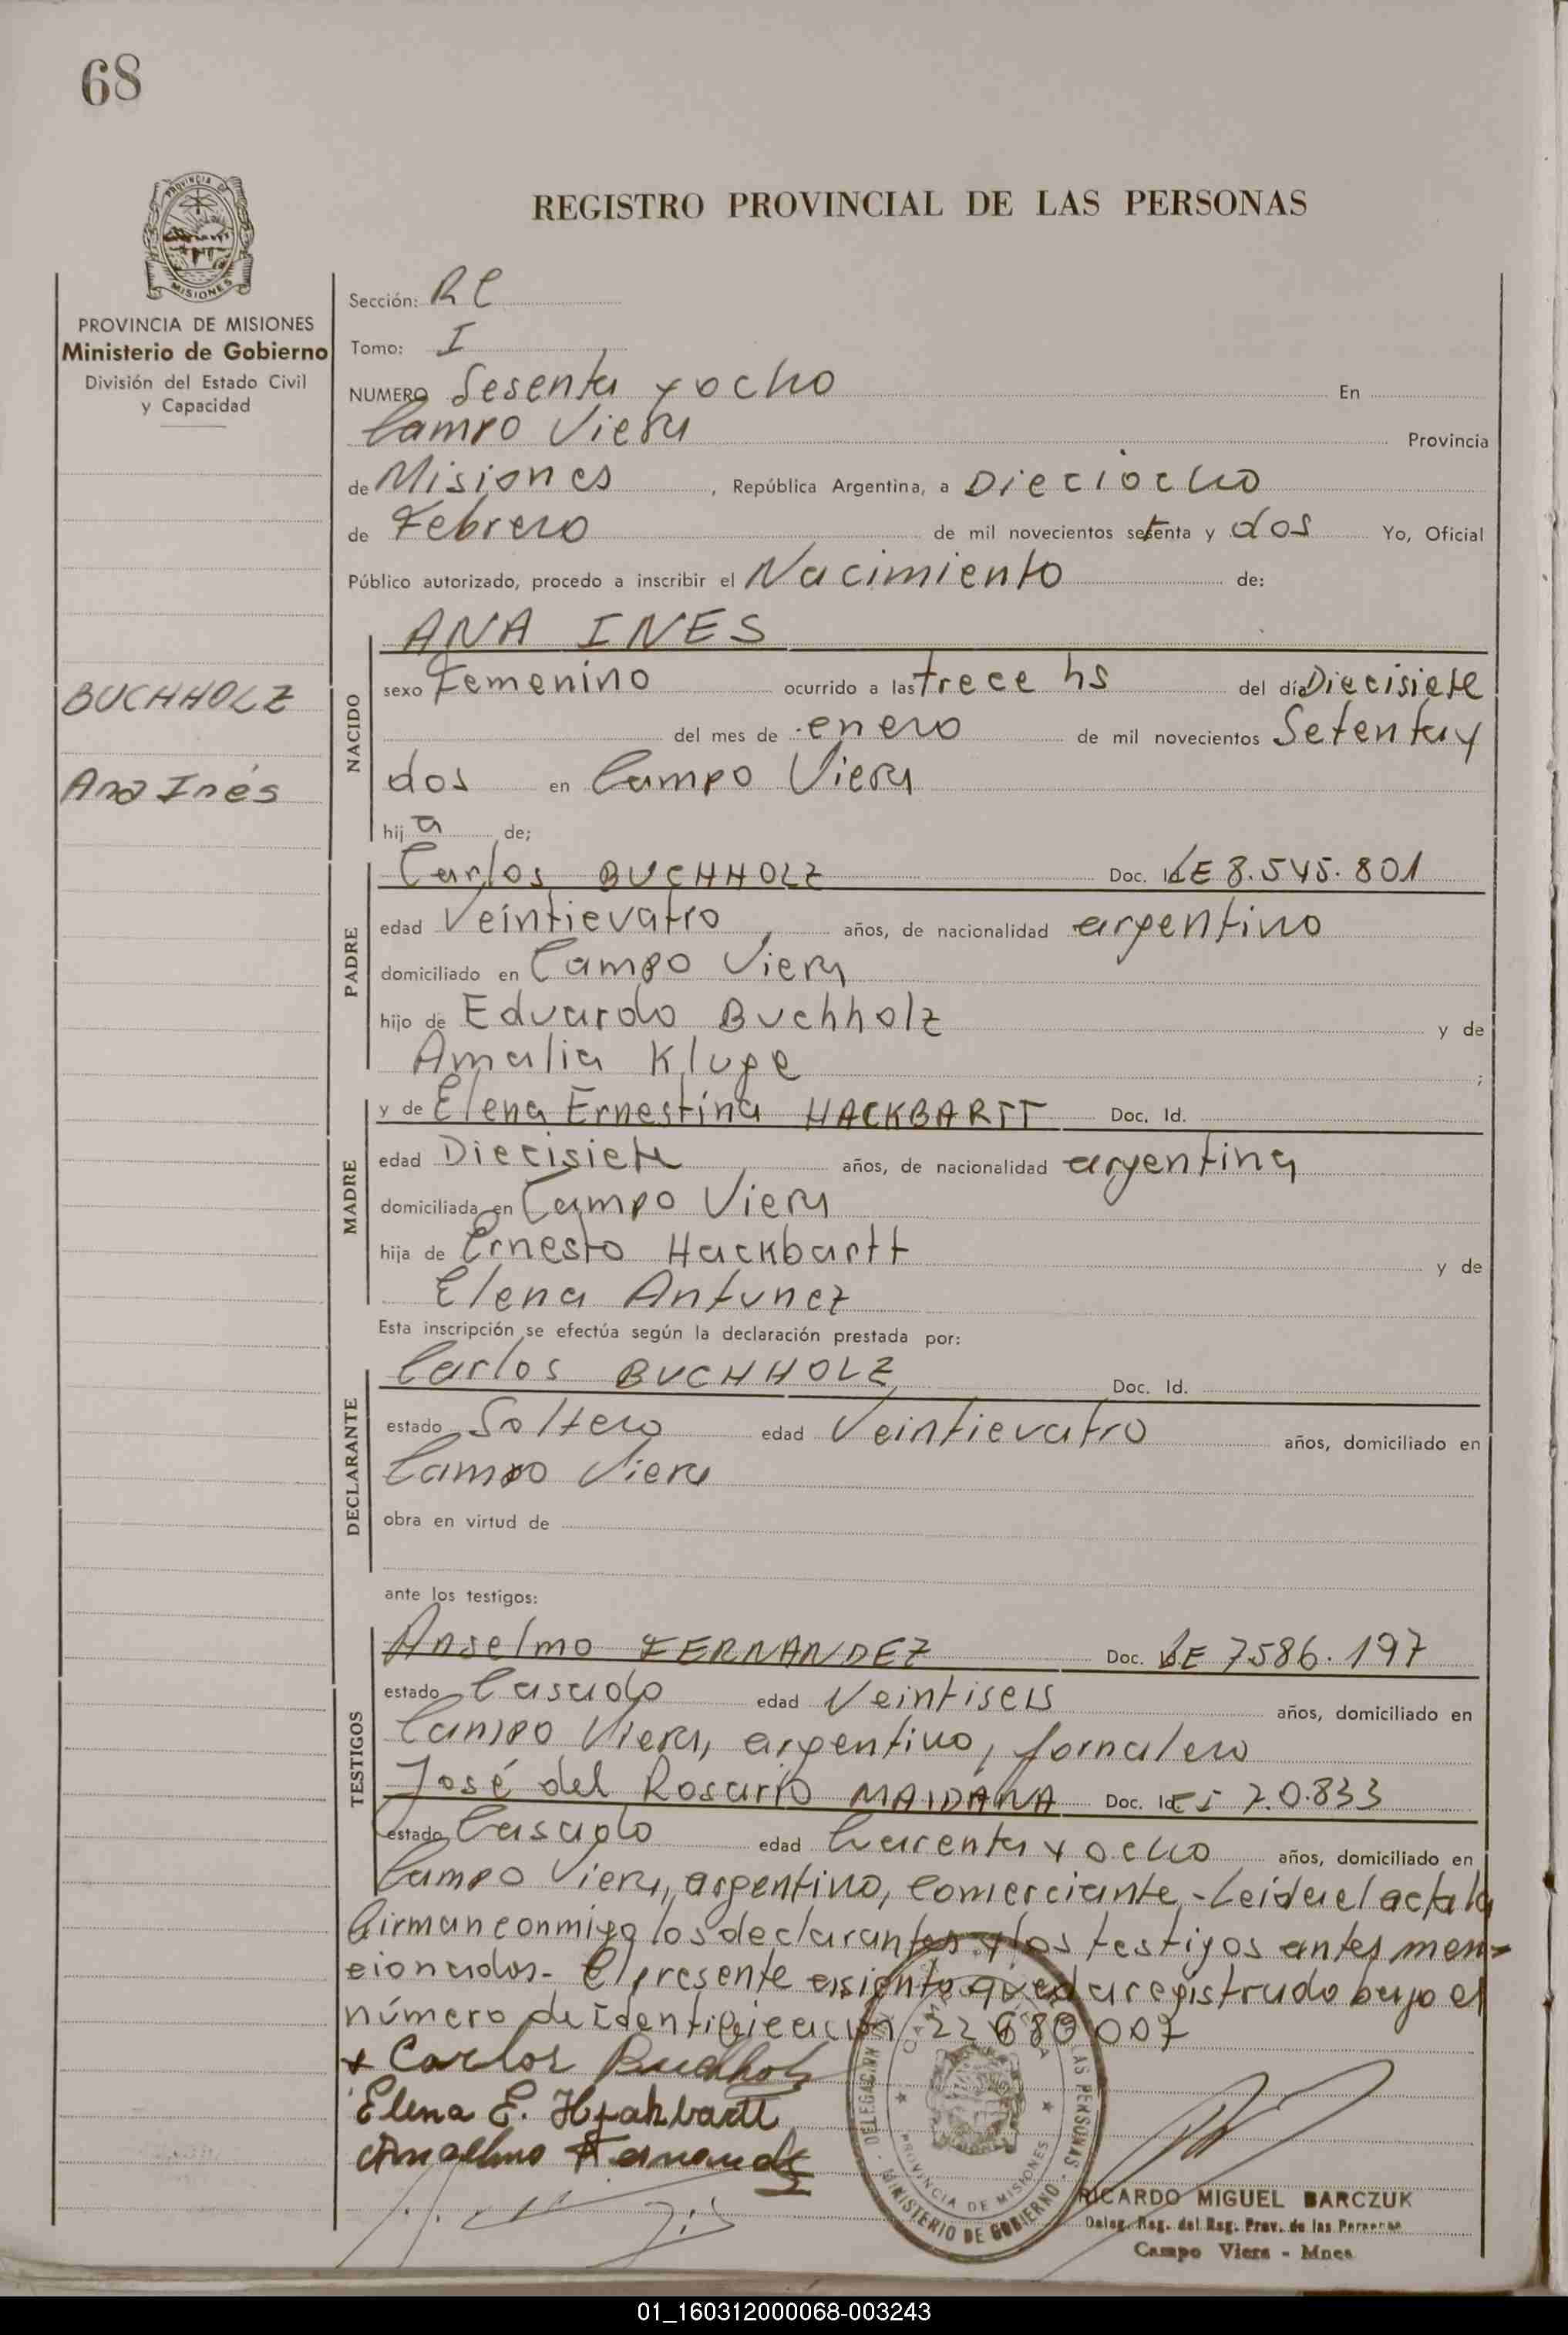 68
REGISTRO PROVINCIAL DE LAS PERSONAS
PROVINCIA DE MISIONES
Ministerio de Gobierno
División del Estado Civil
y Capacidad
BUCHHOLZ
Ana Inés
Sección: RC
Tomo: I
NUMERO Sesenta y ocho En
Campo Viera Provincia
de Misiones, República Argentina, a Dieciocho
de Febrero de mil novecientos setenta y dos Yo, Oficial
Público autorizado, procedo a inscribir el Nacimiento de:
NACIDO
ANA INES
sexo Femenino ocurrido a las trece hs del día Diecisiete
del mes de enero de mil novecientos Setenta y
dos en Campo Viera
hija de;
PADRE
Carlos BUCHHOLZ Doc. Id LE 8.545.801
edad Veinticuatro años, de nacionalidad argentino
domiciliado en Campo Viera
hijo de Eduardo Buchholz y de
Amalia Kluge ;
MADRE
y de Elena Ernestina HACKBARTT Doc. Id.
edad Diecisiete años, de nacionalidad argentina
domiciliada en Campo Viera
hija de Ernesto Hackbartt y de
Elena Antunez
Esta inscripción se efectúa según la declaración prestada por:
DECLARANTE
Carlos BUCHHOLZ Doc. Id.
estado Soltero edad Veinticuatro años, domiciliado en
Campo Viera
obra en virtud de
ante los testigos:
TESTIGOS
Anselmo FERNANDEZ Doc. LE 7.586.197
estado Casado edad Veintiseis años, domiciliado en
Campo Viera, argentino, jornalero
José del Rosario MAIDANA Doc. Id 70.833
estado Casado edad Cuarenta y ocho años, domiciliado en
Campo Viera, argentino, comerciante.- Leida el acta la
firman conmigo los declarantes y los testigos antes men-
cionados.- El presente asiento queda registrado bajo el
número de Identificación 22 680 007
Carlos Buchholz
Elena E. Hackbartt
Anselmo Fernandez
DELEGACION LAS PERSONAS
CAMPO VIERA
PROVINCIA DE MISIONES
MINISTERIO DE GOBIERNO
RICARDO MIGUEL BARCZUK
Deleg. Reg. del Reg. Prov. de las Personas
Campo Viera - Mnes
01_160312000068-003243